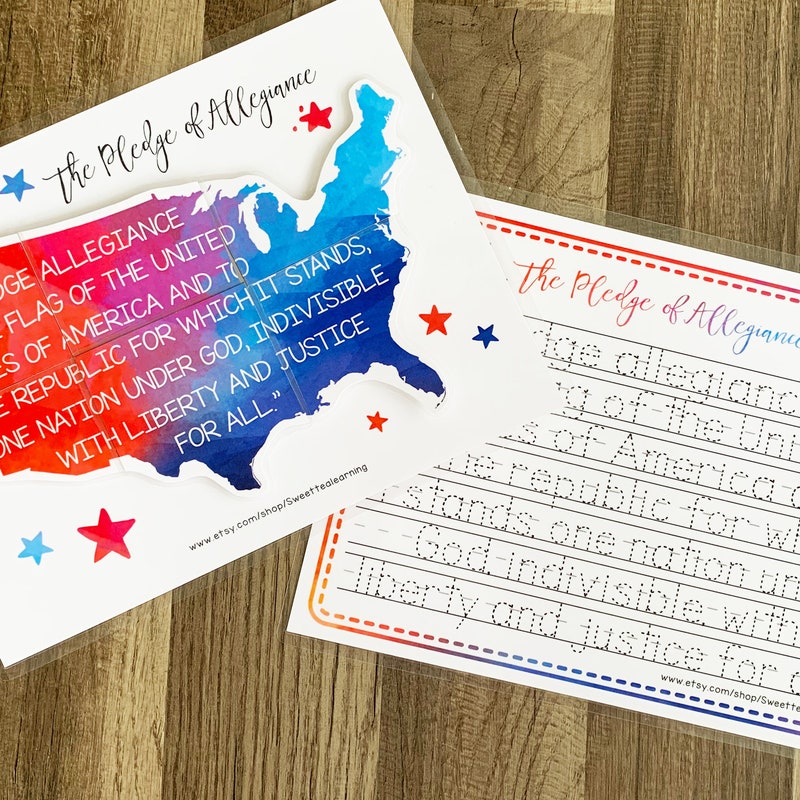 the Pledge of Allegiance
DGE ALLEGIANCE
FLAG OF THE UNITED
ES OF AMERICA AND TO
E REPUBLIC FOR WHICH IT STANDS,
ONE NATION UNDER GOD, INDIVISIBLE
WITH LIBERTY AND JUSTICE
FOR ALL."
www.etsy.com/shop/Sweettealearning
the Pledge of Allegiance
dge allegianc
ag of the Unit
of America a
republic for wh
stands one nation und
God indivisible with
liberty and justice for a
www.etsy.com/shop/Sweette